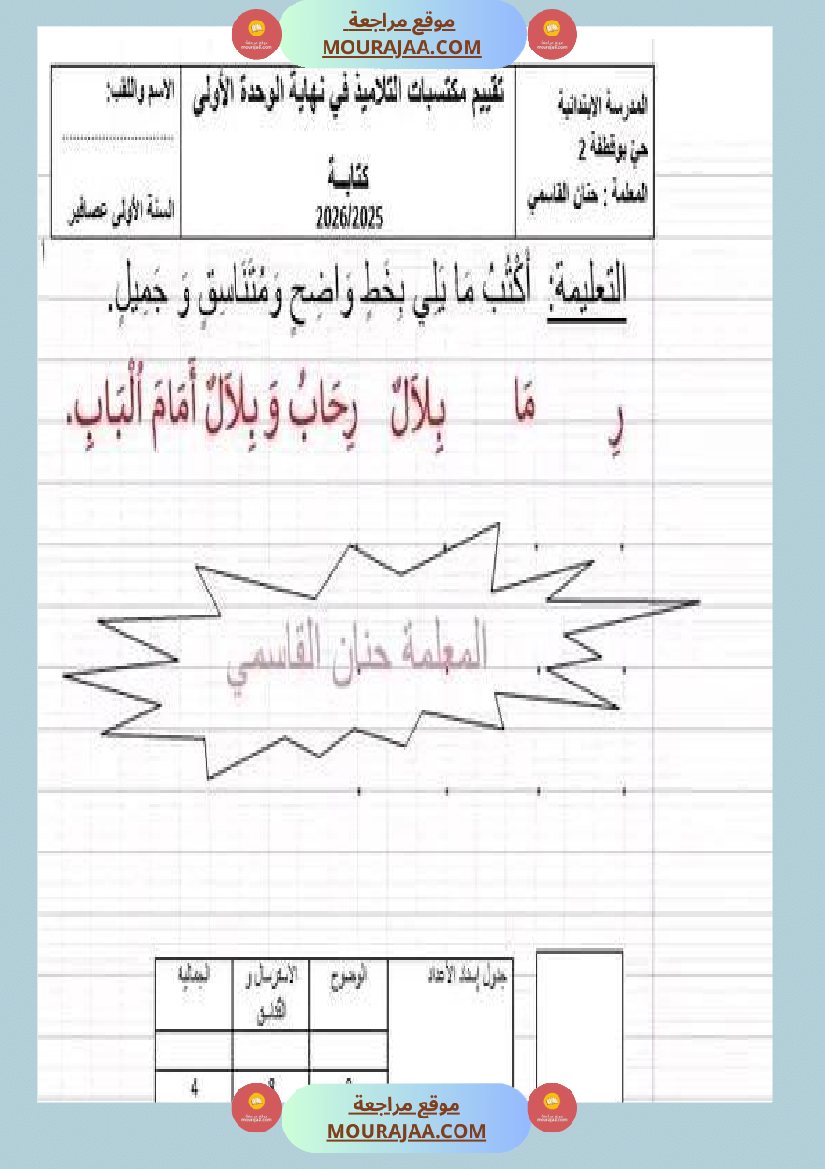 موقع مراجعة
MOURAJAA.COM
المدرسة الابتدائية
حيّ بوقطفة 2
المعلمة : حنان القاسمي
تقييم مكتسبات التلاميذ في نهاية الوحدة الأولى
كتابــة
2026/2025
الاسم واللقب:
السنة الأولى عصافير
التعليمة: أَكْتُبُ مَا يَلِي بِخَطٍ وَاضِحٍ وَمُتَنَاسِقٍ وَ جَمِيلٍ.
رِ مَا بِلاَلٌ رِحَابٌ وَ بِلاَلٌ أَمَامَ اُلْبَابِ.
المعلمة حنان القاسمي
جدول إسناد الأعداد الوضوح الاسترسال و التناسق الجمالية
8 4
موقع مراجعة
MOURAJAA.COM